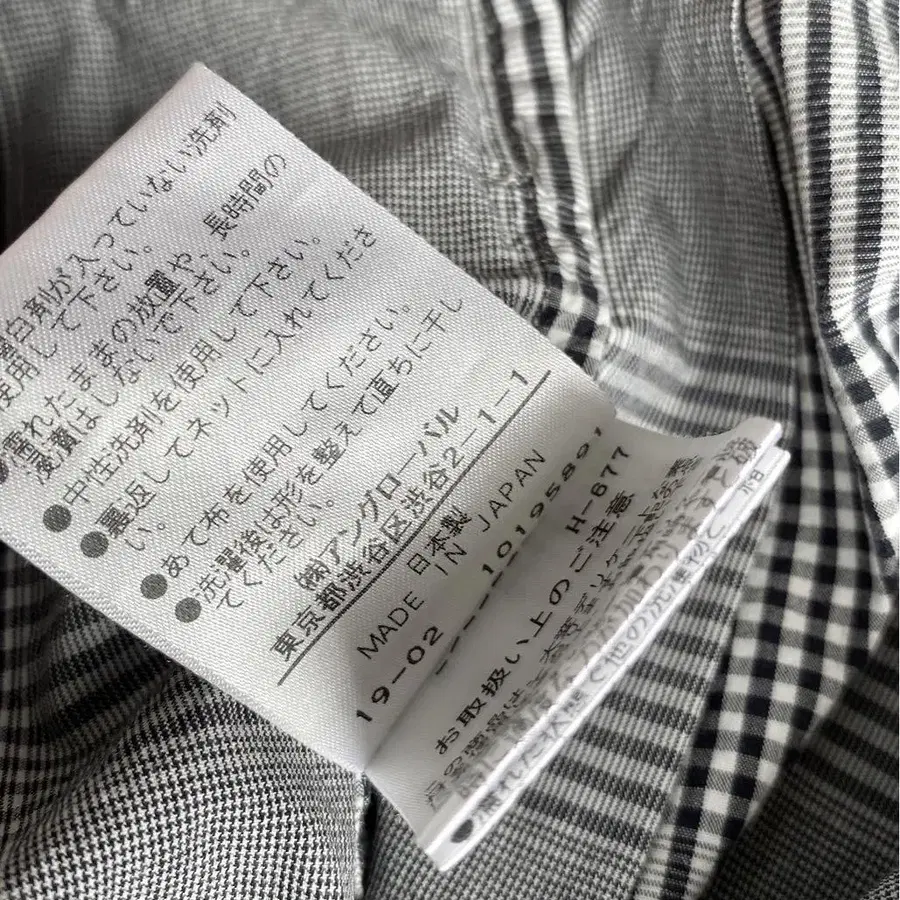 白剤が入っていない洗剤
使用して下さい。
●濡れたままの放置や、長時間の
浸漬はしないで下さい。
●中性洗剤を使用して下さい。
●裏返してネットに入れてくださ
い。
●あて布を使用してください。
●洗濯後は形を整えて直ちに干し
てください。
㈱アングローバル
東京都渋谷区渋谷2-1-1
日本製
MADE IN JAPAN
19-02 10195891
H-677
お取扱い上のご注意